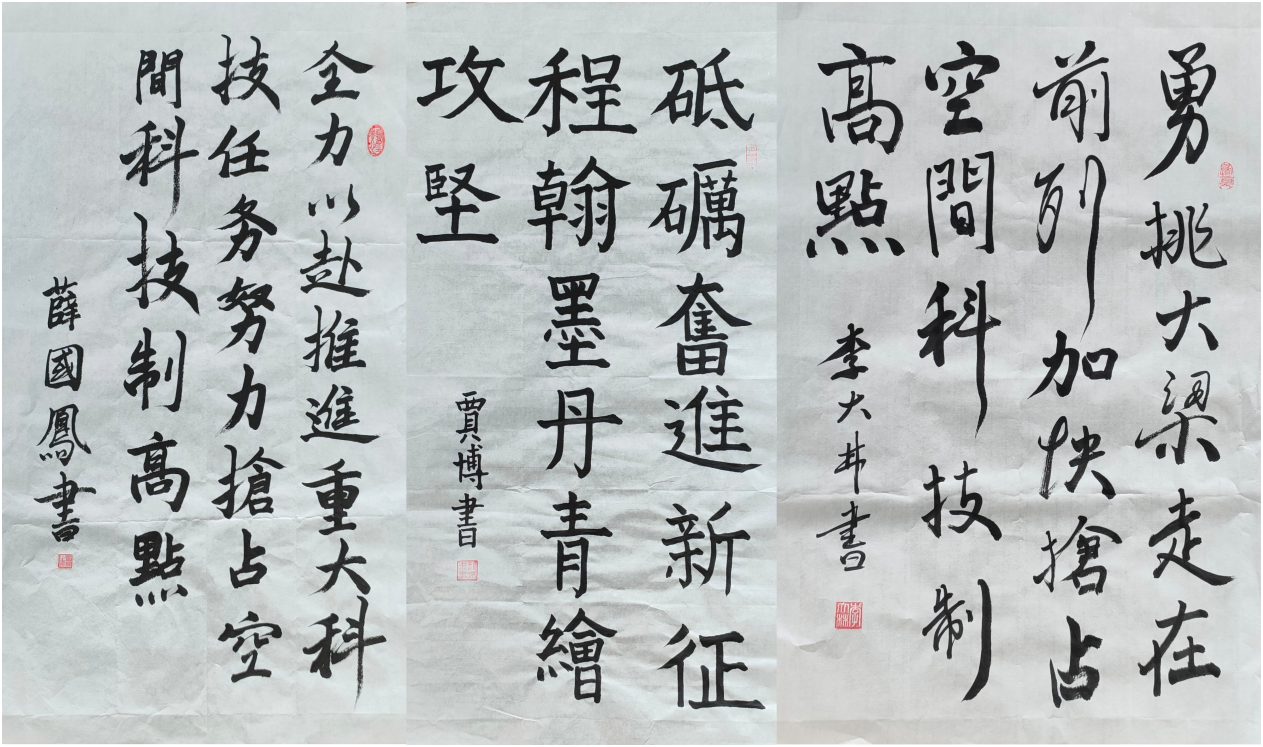 勇挑大梁走在
前列加快搶占
空間科技制
高點
李大林書
砥礪奮進新征
程翰墨丹青繪
攻堅
賈博書
全力以赴推進重大科
技任务努力搶占空
間科技制高點
薛國鳳書